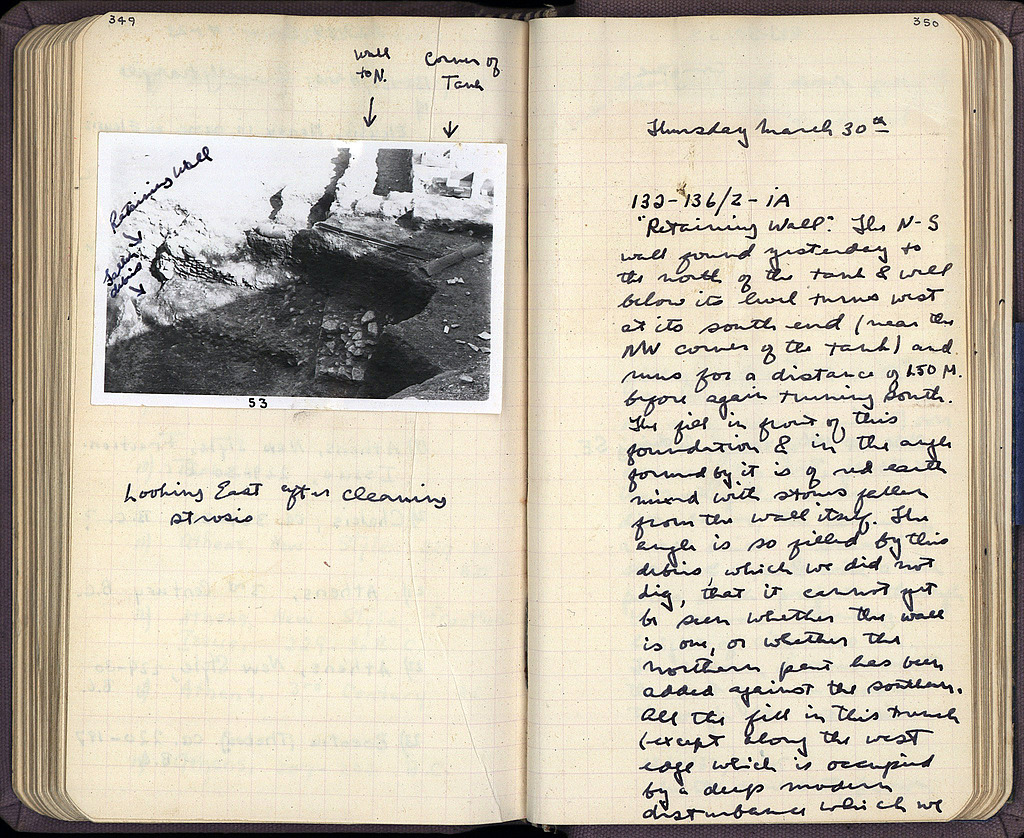 349
Wall
to N.
Corner of
Tank
Retaining Wall
Fallen
debris
53
Looking East after cleaning
strosis
350
Thursday March 30th
132-136/Z-ΙΑ
"Retaining Wall": The N-S
wall found yesterday to
the north of the tank & well
below its level turns west
at its south end (near the
NW corner of the tank) and
runs for a distance of 1.50 M.
before again turning South.
The fill in front of this
foundation & in the angle
formed by it is of red earth
mixed with stones fallen
from the wall itself. The
angle is so filled by this
debris, which we did not
dig, that it cannot yet
be seen whether the wall
is one, or whether the
northern part has been
added against the southern.
All the fill in this trench
(except along the west
edge which is occupied
by a deep modern
disturbance which we